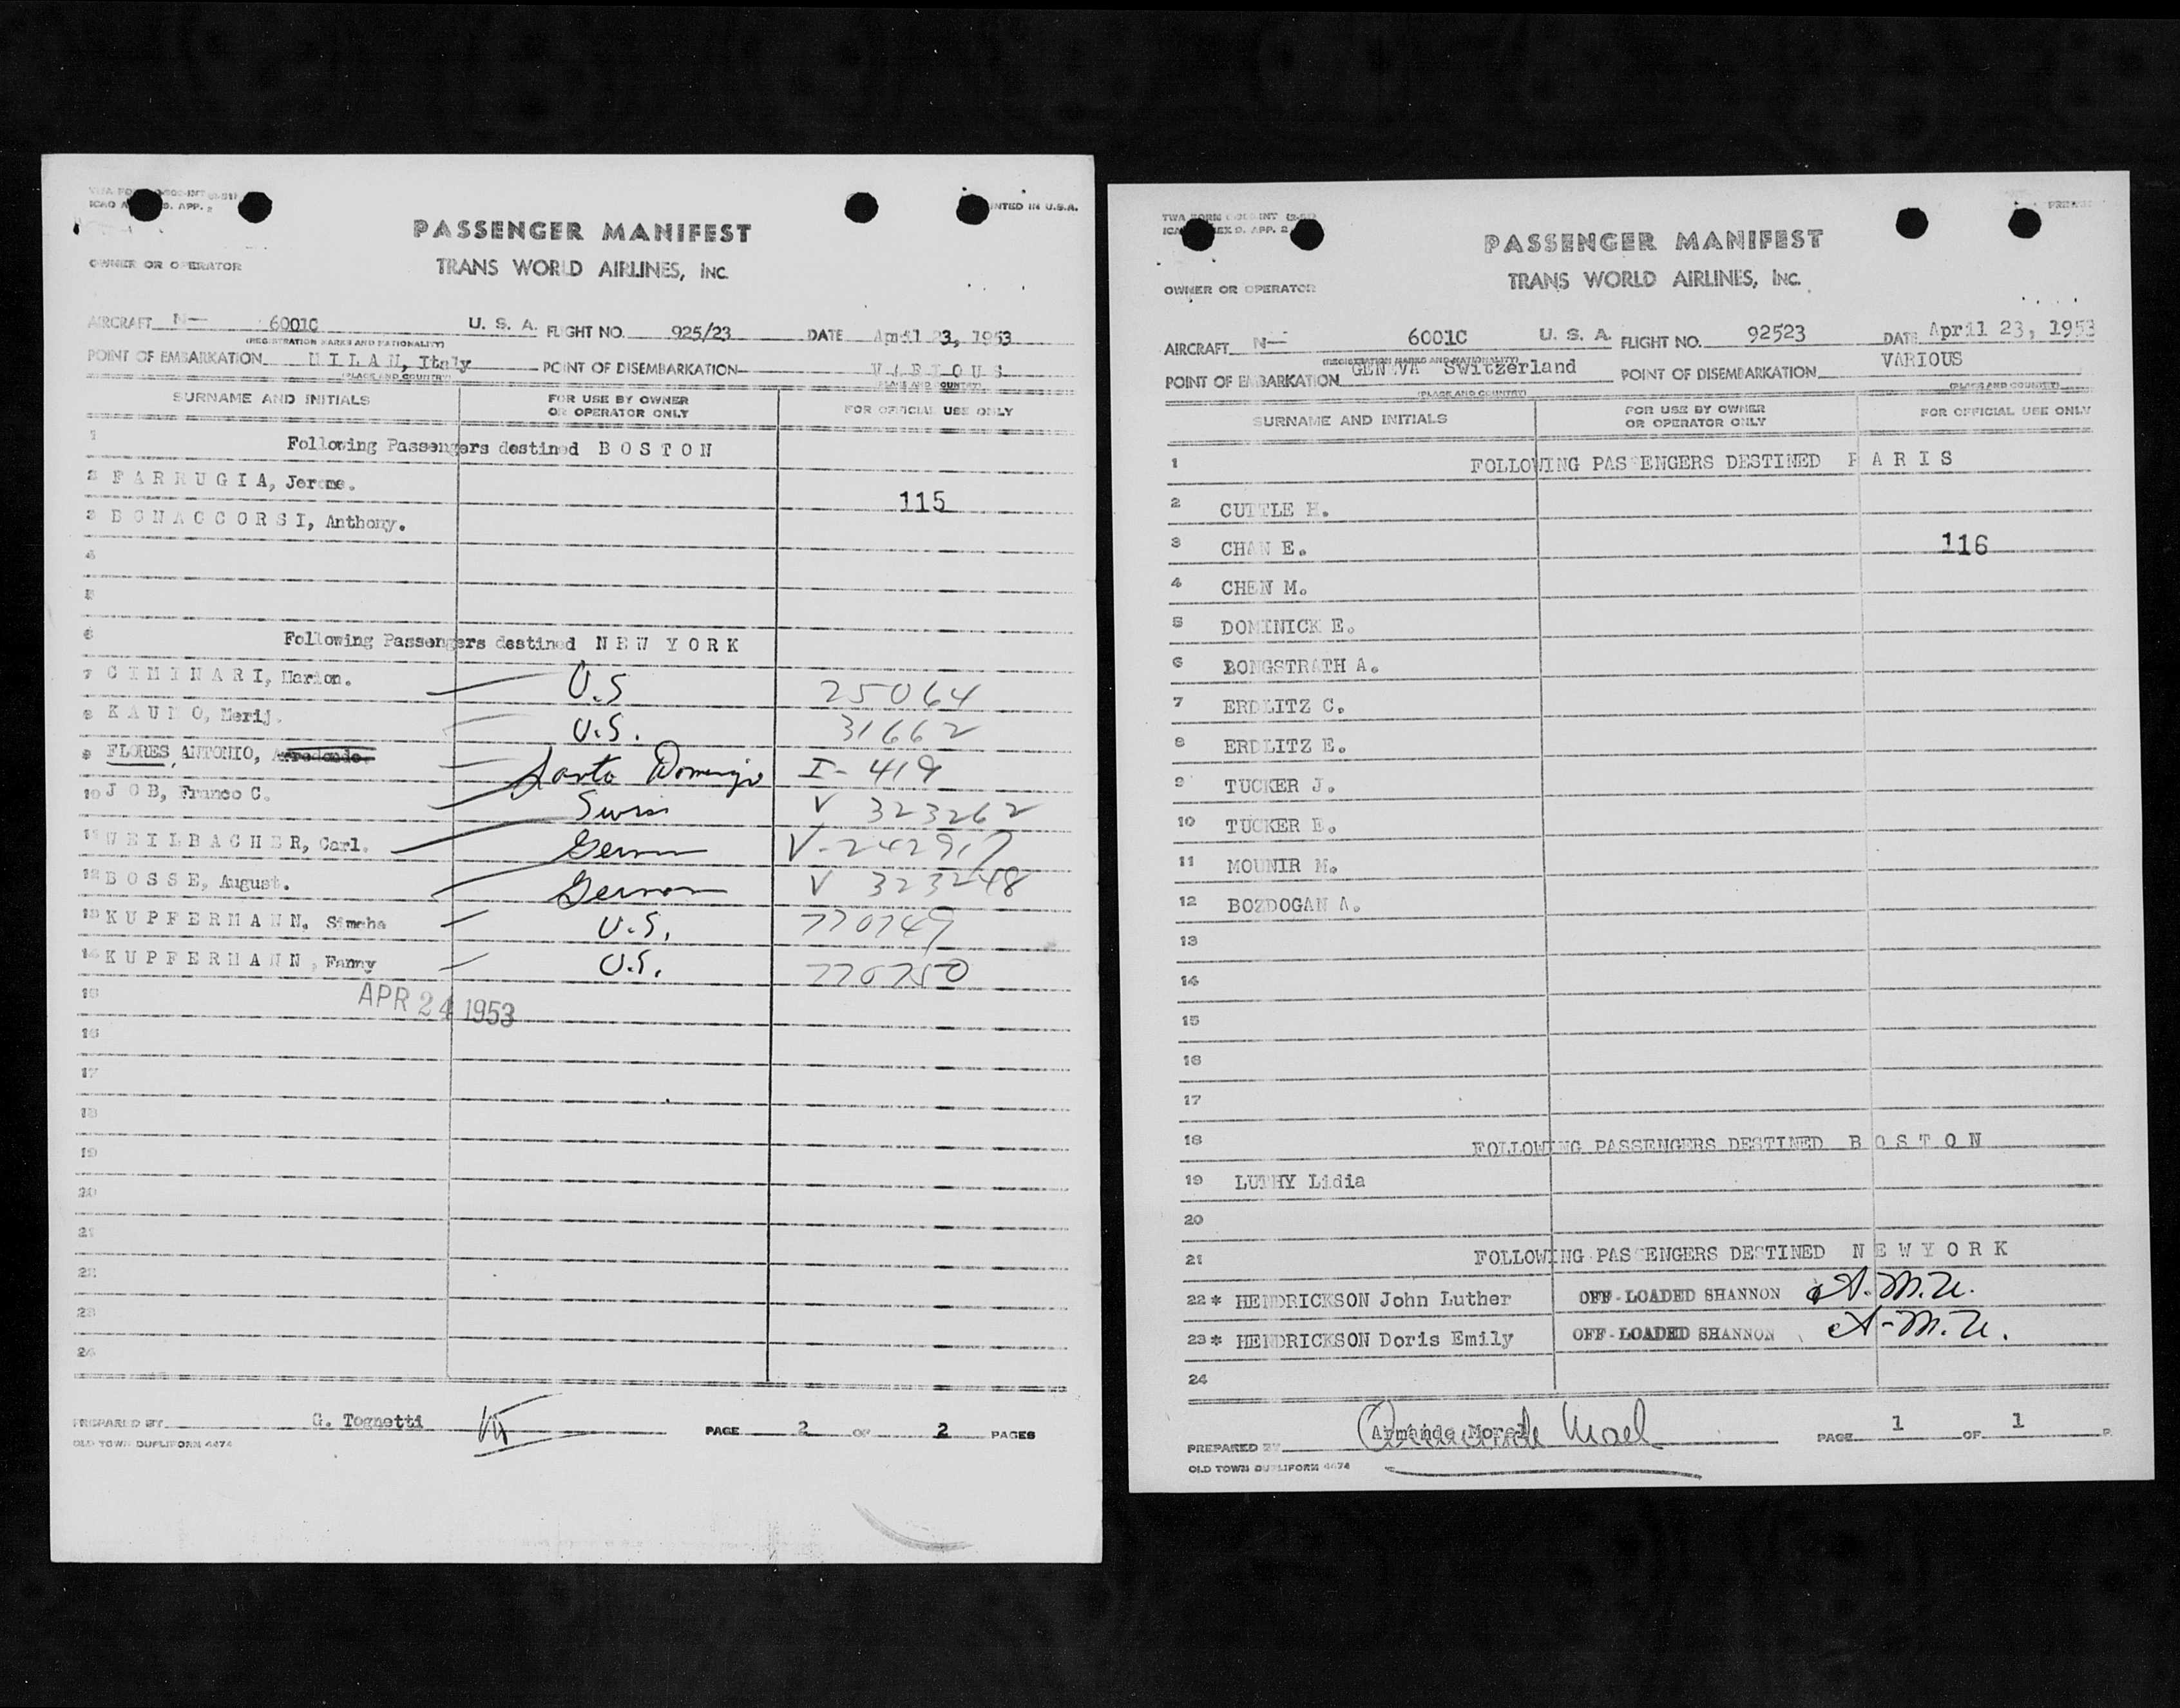 PASSENGER MANIFEST
OWNER OR OPERATOR TRANS WORLD AIRLINES, INC.
NTED IN U.S.A.
AIRCRAFT N- 6001C U. S. A. FLIGHT NO. 925/23 DATE April 23, 1953
(REGISTRATION MARKS AND NATIONALITY)
POINT OF EMBARKATION M I L A N, Italy POINT OF DISEMBARKATION V A R I O U S
(PLACE AND COUNTRY) (PLACE AND COUNTRY)
SURNAME AND INITIALS FOR USE BY OWNER OR OPERATOR ONLY FOR OFFICIAL USE ONLY
1 Following Passengers destined B O S T O N
2 F A R R U G I A, Jerome.
115
3 B O N A C C O R S I, Anthony.
4
5
6 Following Passengers destined N E W Y O R K
7 C I M I N A R I, Marion. U.S 25064
8 K A U N O, Merij. U.S. 31662
9 FLORES, ANTONIO, Arredondo. Santo Domingo I-419
10 J O B, Franco C. Swiss V 323262
11 W E I L B A C H E R, Carl. German V-242917
12 B O S S E, August. German V 323248
13 K U P F E R M A N N, Simcha U.S. 770749
14 K U P F E R M A N N, Fanny U.S. 770750
15
APR 24 1953
16
17
18
19
20
21
22
23
24
PREPARED BY G. Tognetti PAGE 2 OF 2 PAGES
OLD TOWN DUPLIFORM 4474
PASSENGER MANIFEST
OWNER OR OPERATOR TRANS WORLD AIRLINES, INC.
AIRCRAFT N- 6001C U. S. A. FLIGHT NO. 92523 DATE April 23, 1953
(REGISTRATION MARKS AND NATIONALITY)
POINT OF EMBARKATION GENEVA Switzerland POINT OF DISEMBARKATION VARIOUS
(PLACE AND COUNTRY) (PLACE AND COUNTRY)
SURNAME AND INITIALS FOR USE BY OWNER OR OPERATOR ONLY FOR OFFICIAL USE ONLY
1 FOLLOWING PASSENGERS DESTINED P A R I S
2 CUTTLE H.
3 CHAN E. 116
4 CHEN M.
5 DOMINICK E.
6 LONGSTRATH A.
7 ERDLITZ C.
8 ERDLITZ E.
9 TUCKER J.
10 TUCKER E.
11 MOUNIR M.
12 BOZDOGAN A.
13
14
15
16
17
18 FOLLOWING PASSENGERS DESTINED B O S T O N
19 LUTHY Lidia
20
21 FOLLOWING PASSENGERS DESTINED N E W Y O R K
22 * HENDRICKSON John Luther OFF-LOADED SHANNON A.M.U.
23 * HENDRICKSON Doris Emily OFF-LOADED SHANNON A.M.U.
24
PREPARED BY Armande Morel PAGE 1 OF 1 P
OLD TOWN DUPLIFORM 4474